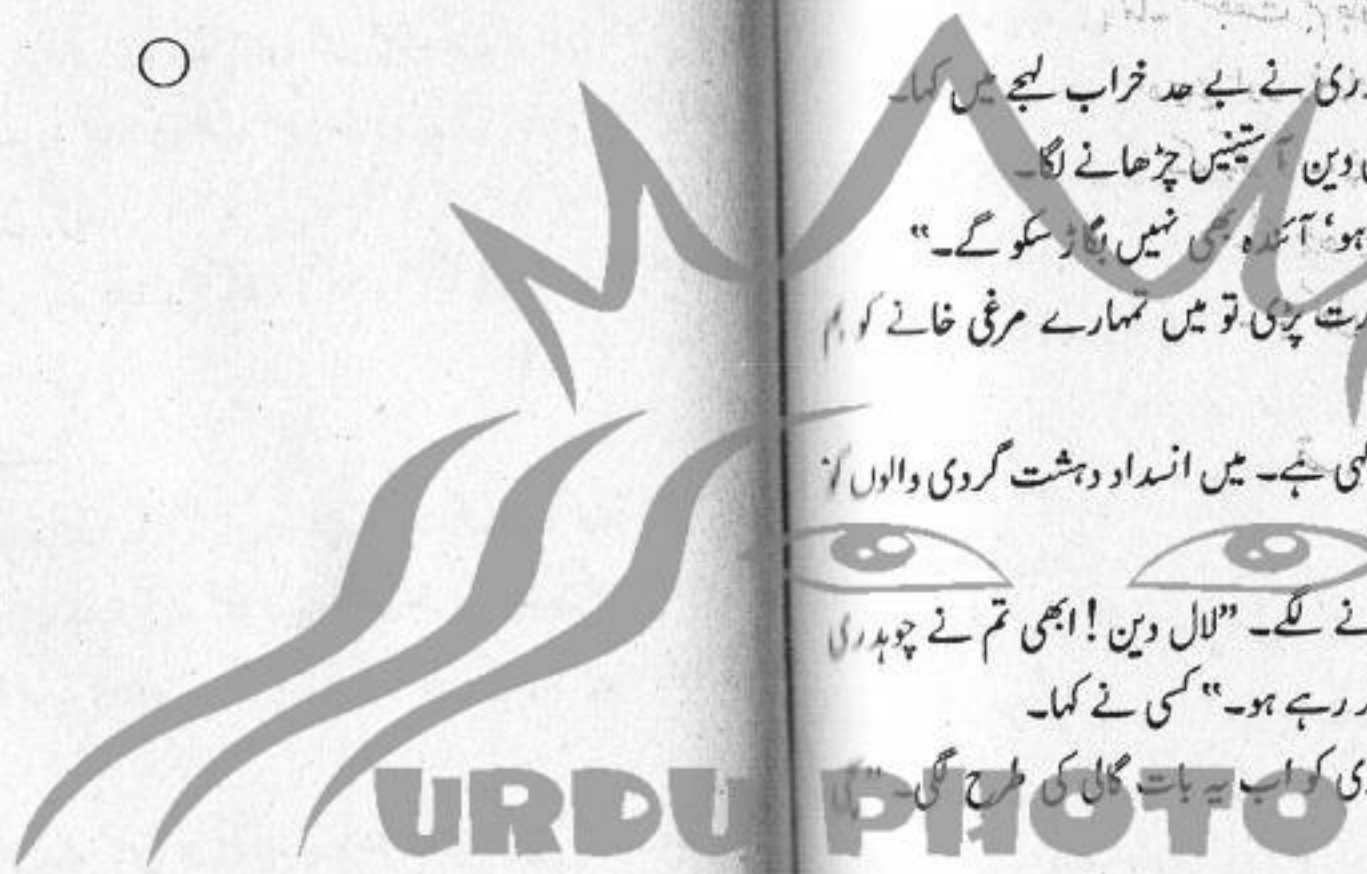 نے بے حد خراب لہجے میں کہا۔
دین آستینیں چڑھانے لگا۔
ہو، آئندہ بھی نہیں بگاڑ سکو گے۔"
پڑی تو میں تمہارے مرغی خانے کو بم
ہے۔ میں انسداد دہشت گردی والوں کو
لگے۔ "لال دین! ابھی تم نے چوہدری
رہے ہو۔" کسی نے کہا۔
کو اب یہ بات گالی کی طرح لگی۔
URDU PHOTO